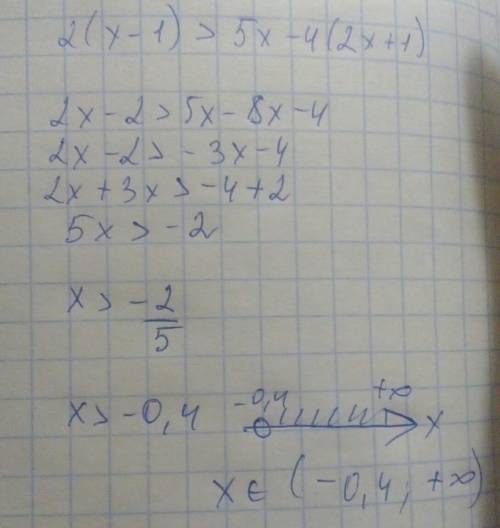 2(x-1) > 5x-4(2x+1)
2x-2>5x-8x-4
2x-2>-3x-4
2x+3x>-4+2
5x>-2
x>-2/5
x>-0,4 -0,4 +∞ x
x∈(-0,4; +∞)